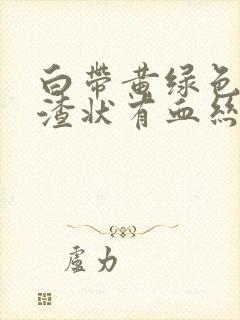 白帶黄绿色
渣状有血絲
盧力